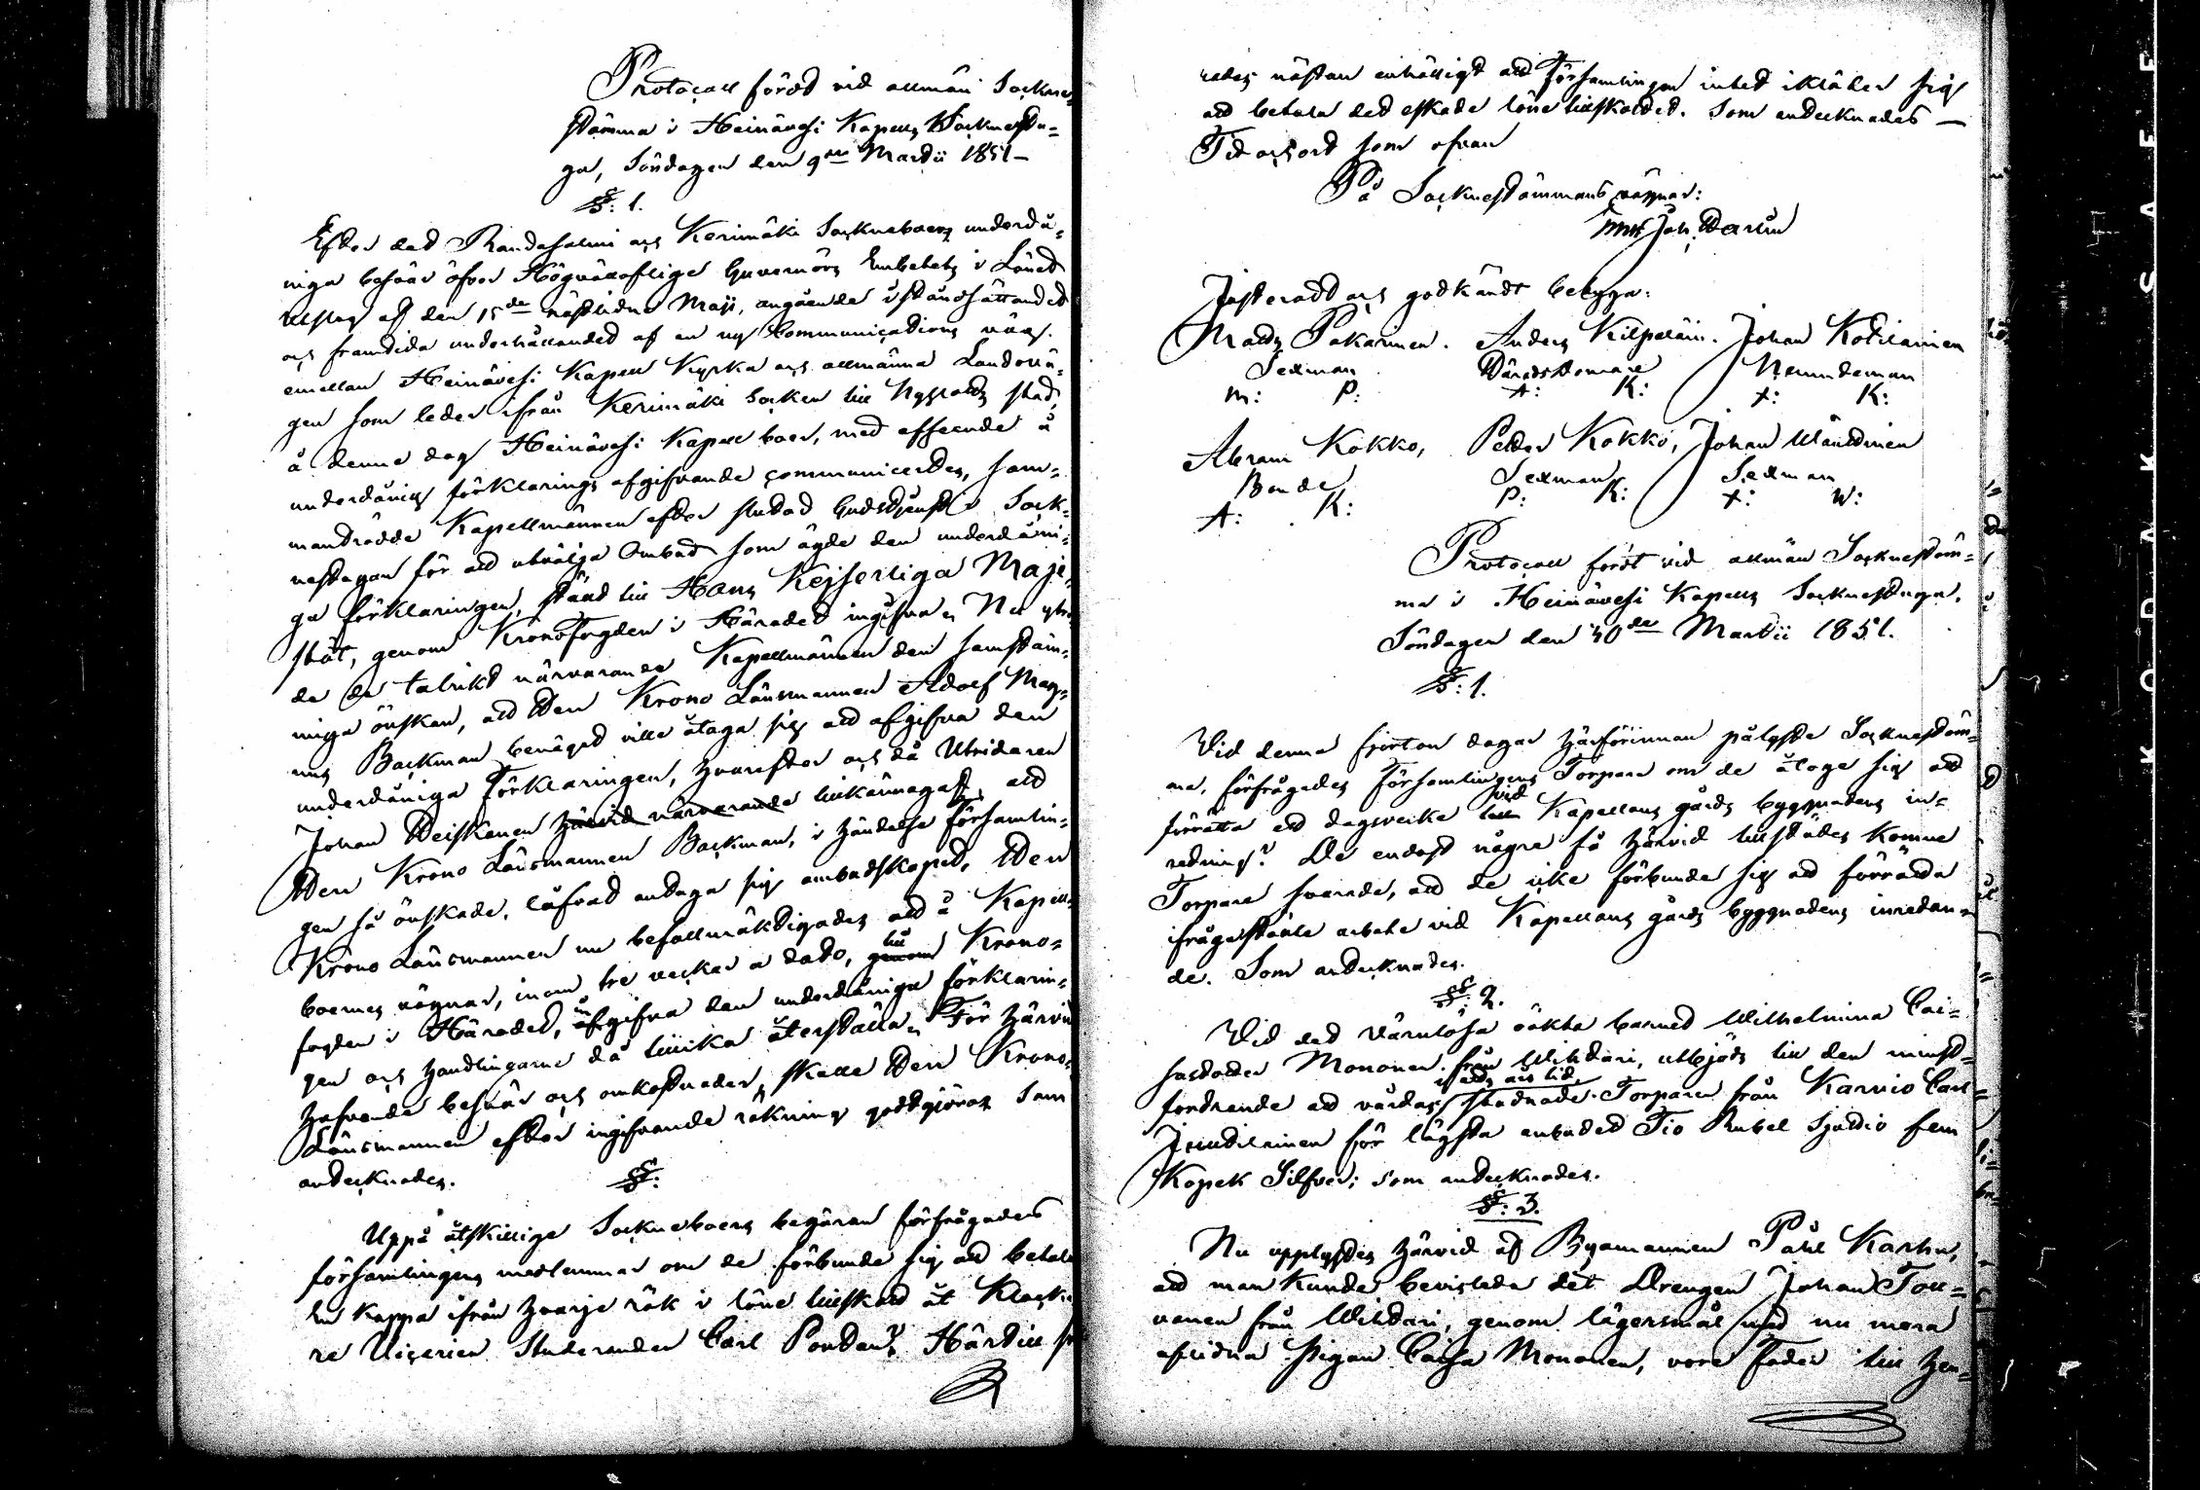 Protocoll fördt vid allmän Sockne-
stämma i Heinävesi Kapells Socknestu-
ga, Söndagen den 9de Martii 1851 –
§: 1.
Efter det Randasalmi och Kerimäki Sockneboers underdå-
niga besvär öfver Högvällofliga Guvernörs Embetets i Länet
utslag af den 15de nästledne Maji, angående iståndsättandet
och framtida underhållandet af en ny Communications väg
emellan Heinävesi Kapell Kyrka och allmänna Landsvä-
gen som leder ifrån Kerimäki Socken till Nyslotts stad,
å denne dag Heinävesi Kapell boer, med afseende å
underdånig förklarings afgifvande communicerdes, sam-
manträdde Kapellmännen efter slutad Gudstjenst i Sock-
nestugan för att utvälja Ombud som ägde den underdåni-
ga förklaringen, stäld till Hans Kejserliga Maje-
stät, genom Kronofogden i Häradet ingifva. Nu
de de talrikt närvarande Kapellmännen den samstäm-
miga önskan, att Herr Krono Länsmannen Adolf Mag-
nus Backman benäget ville åtaga sig att afgifva den
underdåniga förklaringen, hvarefter och då Utridaren
Johan Heiskanen härvid närvarande tillkännagaf, att
Herr Krono Länsmannen Backman, i händelse församlin-
gen så önskade, låfvat antaga sig ombudskapet, Herr
Krono Länsmannen nu befullmäktigades att å Kapell-
boernes vägnar, inom tre veckor a dato, genom till Krono-
fogden i Häradet, afgifva den underdåniga förklarin-
gen och handlingarne då tillika återställa. För härvid
hafvande besvär och omkostnader, skulle Herr Krono-
Länsmannen efter ingifvande räkning godtgöras som
antecknades.
§:
Uppå åtskillige Socknboers begäran förfrågades
församlingens medlemmar om de förbunde sig att betala
En Kappa ifrån hvarje rök i löne tillskott åt Klocka-
re Vicarien Studeranden Carl Pontan? Härtill
rades nästan enhälligt att Församlingen intet ikläder sig
att betala det eskade löne tillskottet. Som antecknades —
Tid och ort som ofvan
På Socknestämmans vägnar:
Joh.
Justeradt och godkändt betyga:
Matts Pakarinen. Anders Kilpeläin. Johan Kotilainen
Sexman Häradsdomare Nämndeman
M: P: A: K: J: K:
Abram Kokko, Petter Kokko, Johan Wänttinen
Bonde Sexman Sexman
A: K: P: K: J: W:
Protocoll fördt vid allmän Socknestäm-
ma i Heinävesi Kapells Socknestuga,
Söndagen den 30de Martii 1851.
§: 1.
Vid denna fjorton dagar härförinnan pålyste Socknestäm-
ma, förfrågades Församlingens Torpare om de åtoge sig att
förrätta ett dagsverke vid Kapellans gårds byggnadens in-
redning? De endast någre få härvid tillstädes komne
Torpare svarade, att de icke förbunde sig att förrätta
ifrågastälde arbete vid Kapellans gårds byggnadens inredan-
de. Som antecknades.
§: 2.
Vid det värnlösa oäkta barnet Wilhelmina Cai-
sasdotter Mononen från Wihtari, utbjöds till den minst-
fordrande att vårdas ett års tid, stadnade Torparen från Karvio Carl
för lägsta anbudet Tio Rubel Sjuttio fem
Kopek Silfver; som antecknades.
§: 3.
Nu upplystes härvid af Byamannen Påhl Karhu,
att man kunde bevisleda det Drengen Johan Toll-
vanen från Wihtari, genom lägersmål med nu mera
aflidna Pigan Caisa Mononen, vore Fader till hen-